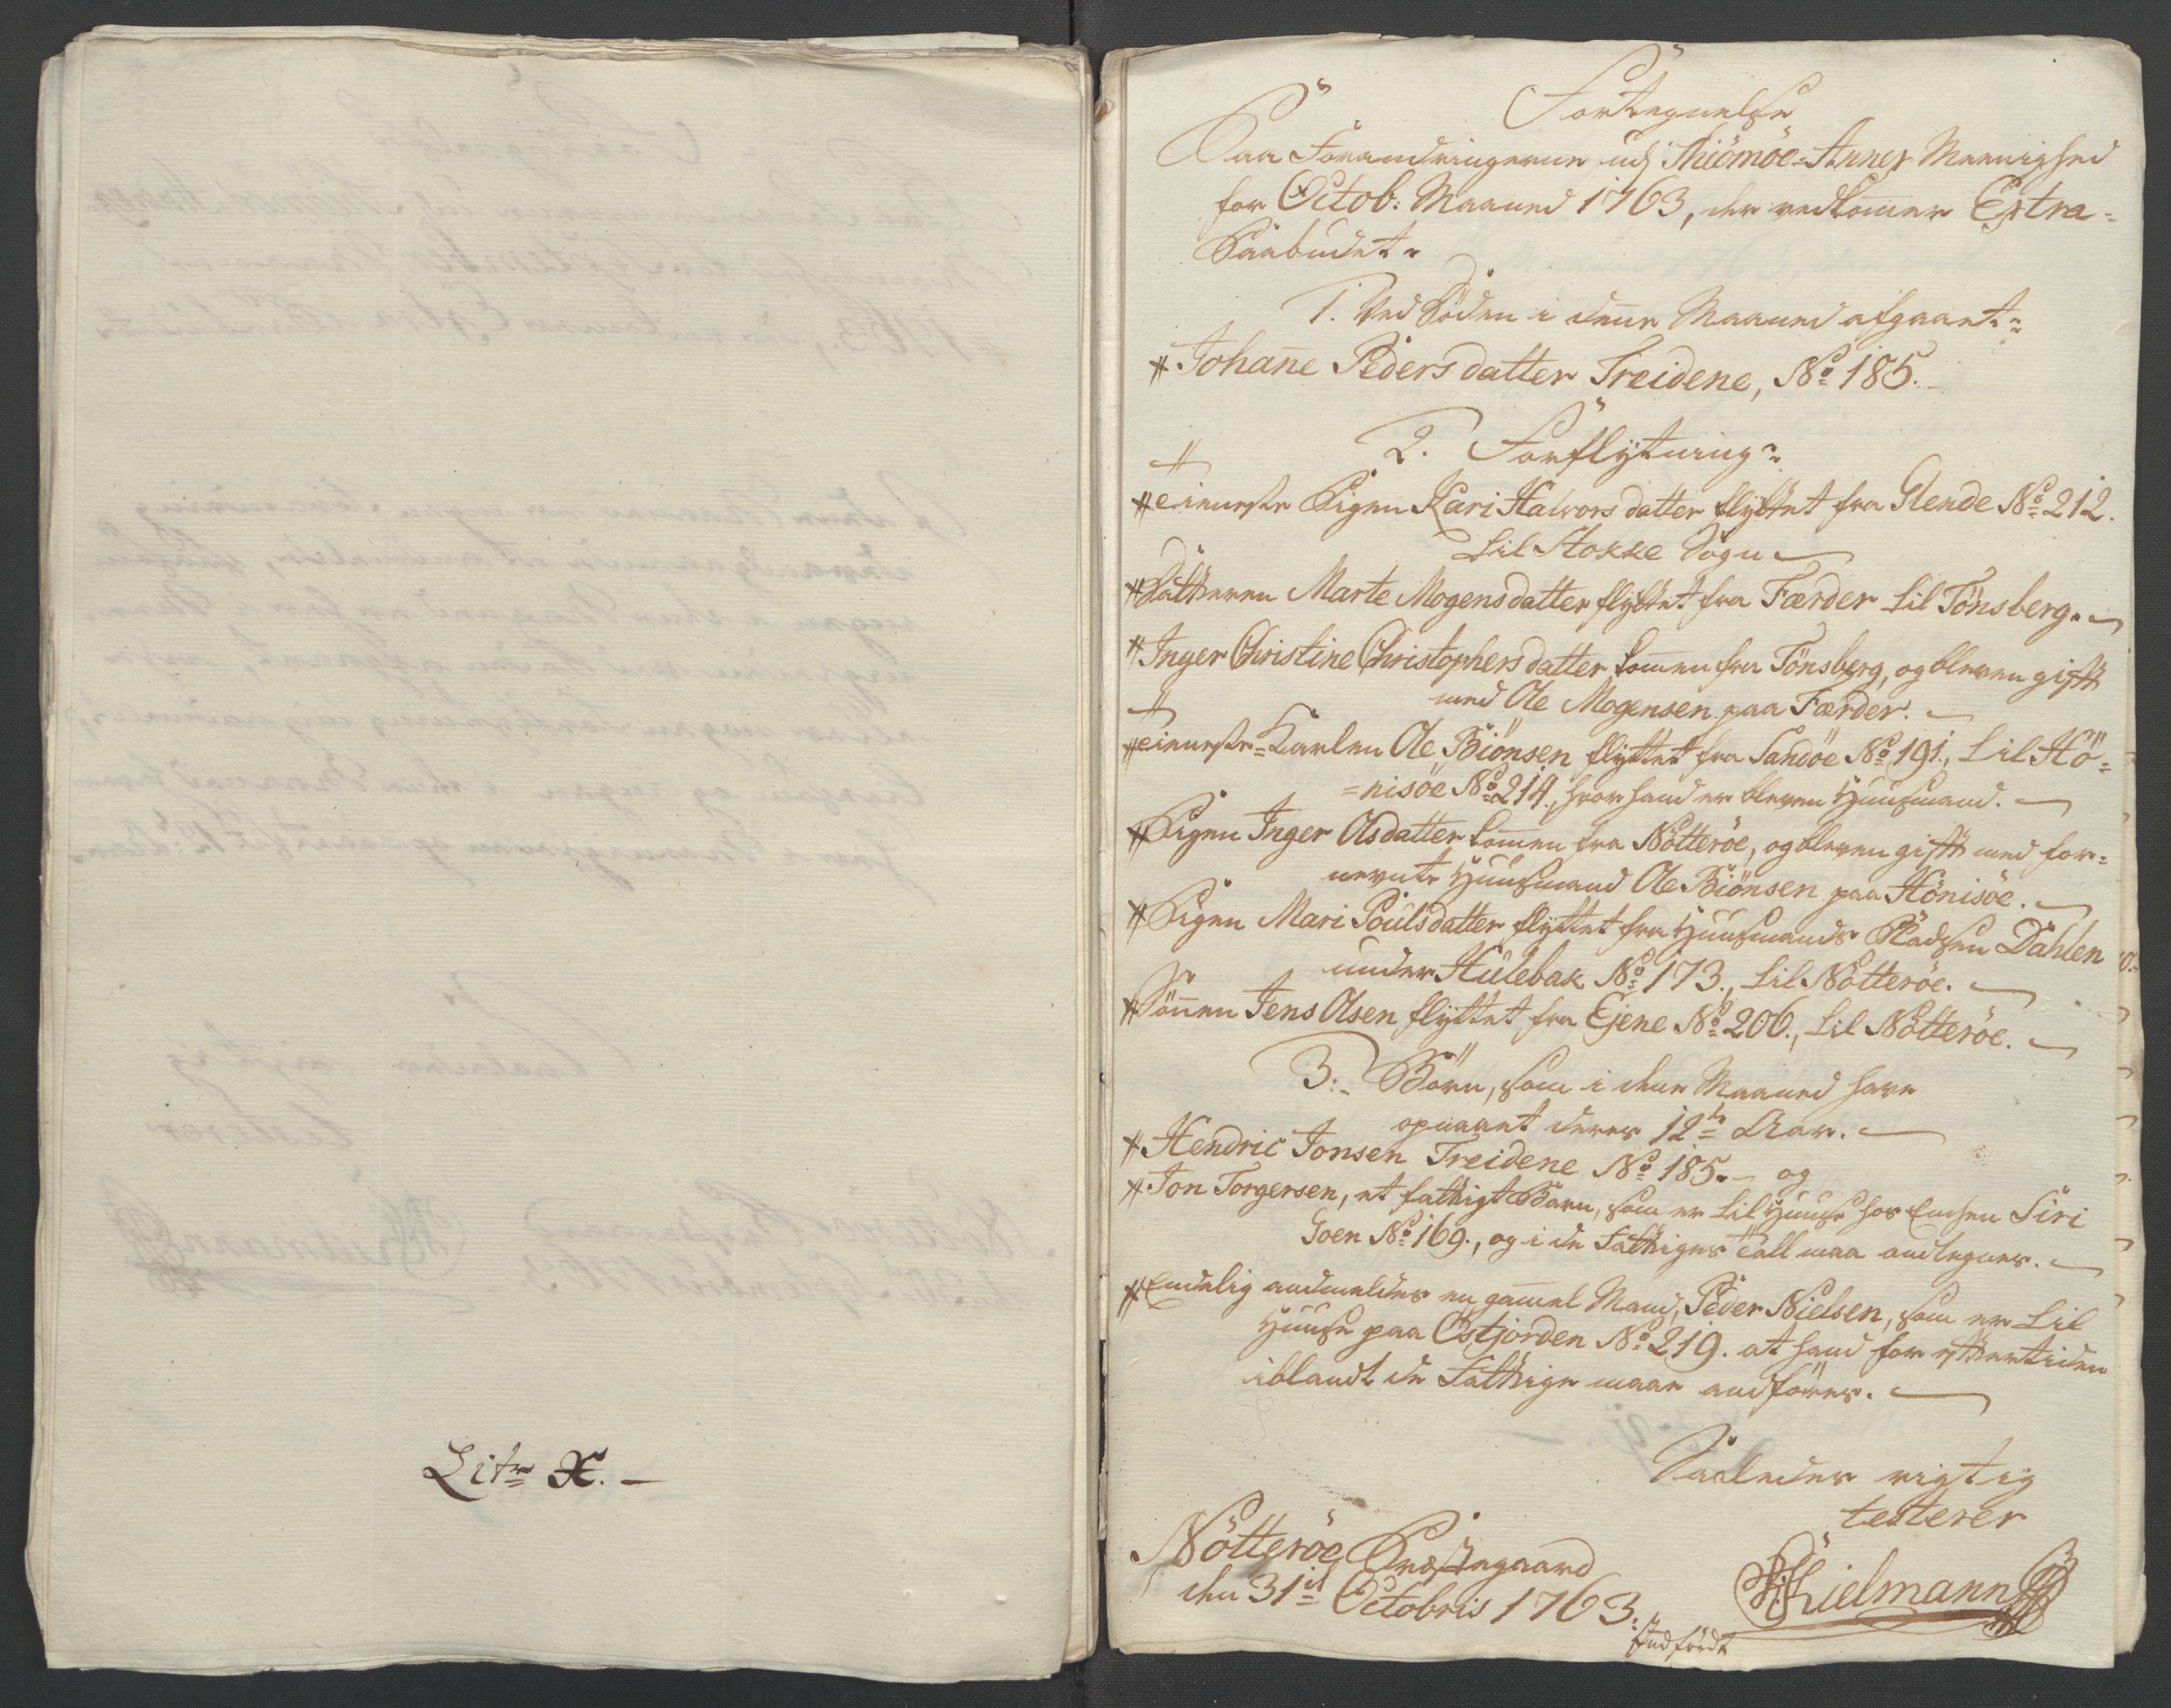 Litr X. —
Fortegnelse
Paa Forandringerne udj Thiömöe-Annex Meenighed
for Octob: Maaned 1763, der vedkom̄er Extra-
Paabudet.
1. Ved Döden i den̄e Maaned afgaaet.
Johan̄e Pedersdatter Treidene, No 185.
2. Forflytning.
Tieneste Pigen Kari Halvorsdatter flyttet fra Glende No 212.
til Stokke Sogn
Datteren Marte Mogensdatter flyttet fra Færder til Tönsberg.
Inger Christine Christophersdatter kom̄en fra Tönsberg, og bleven gift
med Ole Mogensen paa Færder.
Tieneste-Karlen Ole Biönsen flyttet fra Sandöe No 191., til Hö-
=nisöe No 214., hvor hand er bleven Huusmand.
Pigen Inger Olsdatter kom̄en fra Nötteröe, og bleven gift med for-
nevnte Huusmand Ole Biönsen paa Hönisöe.
Pigen Mari Poulsdatter flyttet fra Huusmands Pladsen Dahlen
under Hulebak No 173., til Nötteröe.
Sön̄en Jens Olsen flyttet fra Ejene No 206., til Nötteröe.
3. Börn, som i den̄e Maaned have
opnaaet deres 12te Aar.
Hendric Jonsen Treidene No 185. og
Jon Torgersen, et fattigt Barn, som er til Huuse hos Enken Siri
Goen No 169., og i de Fattiges Tall maa andtegnes.
Endelig andmeldes en gam̄el Mand, Peder Nielsen, som er til
Huuse paa Östjorden No 219. at hand for eftertiden
iblandt de Fattige maae andföres.
Saaledes rigtig
testerer
Nötteröe Præstegaard
den 31id Octobris 1763.
Kielmann
Indfördt